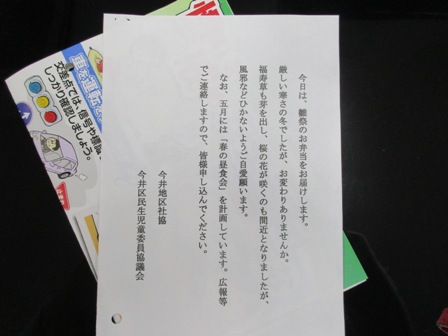 今日は、雛祭のお弁当をお届けします。
厳しい寒さの冬でしたが、お変わりありませんか。
福寿草も芽を出し、桜の花が咲くのも間近となりましたが、
風邪などひかないようご自愛願います。
なお、五月には「春の昼食会」を計画しています。広報等
でご連絡しますので、皆様申し込んでください。
今井地区社協
今井区民生児童委員協議会
車を運転
交差点では、信号や標識
しっかり確認しましょう。